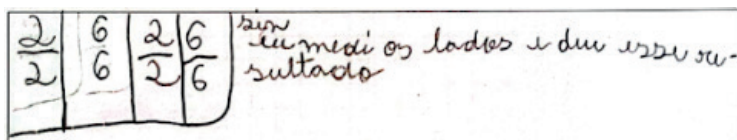 2 6 2 6 sim
2 6 2 6 eu medi os lados e deu esse re-
sultado